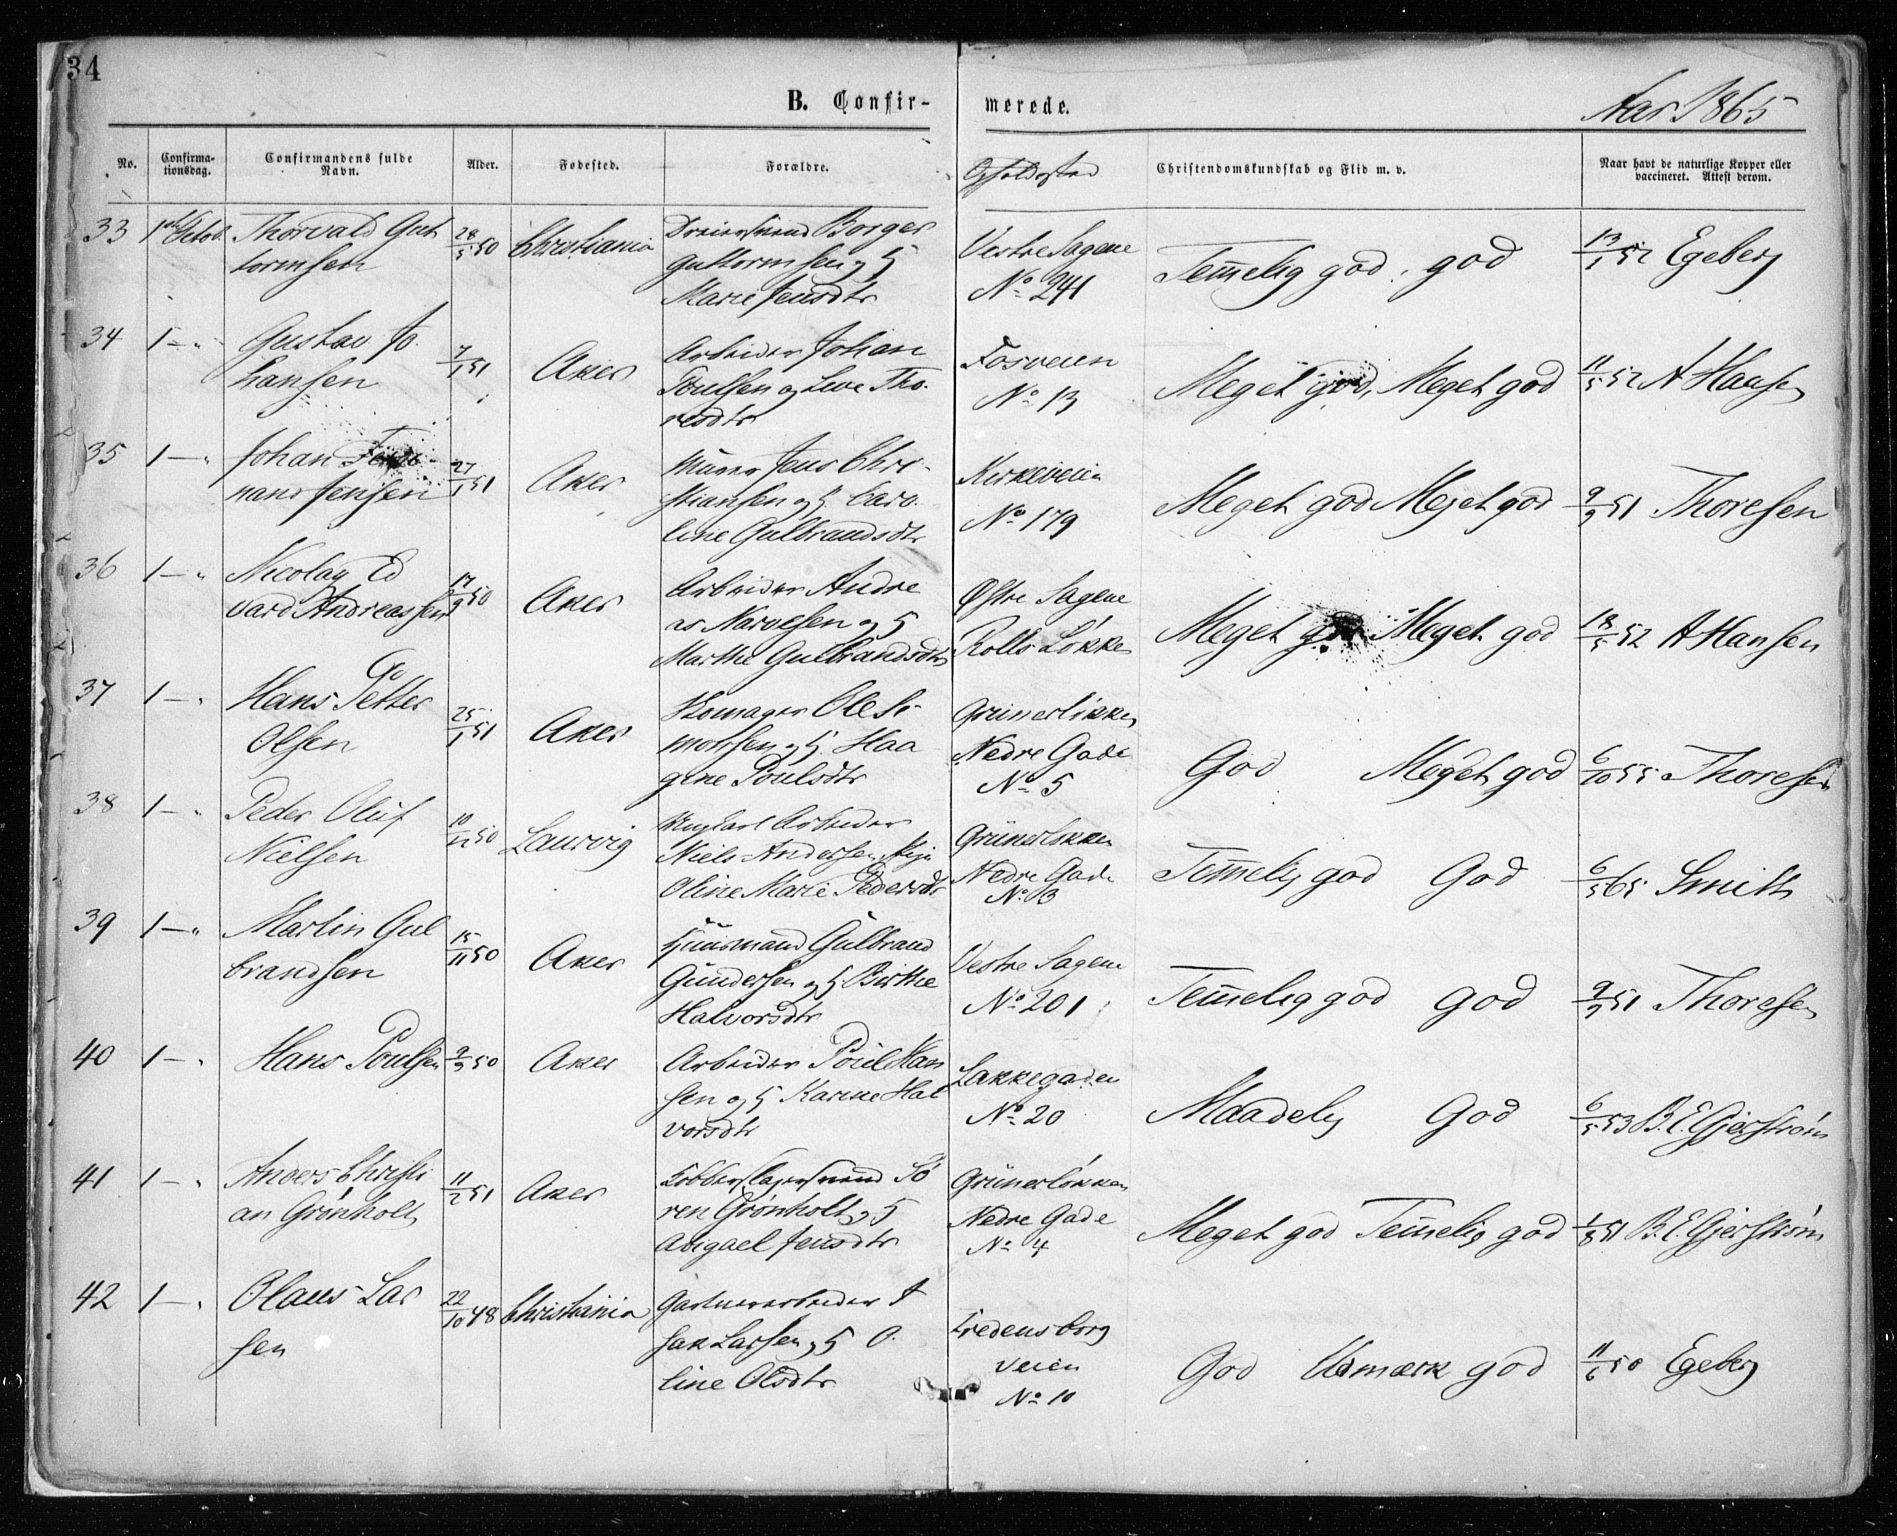 34
B. Confir-
merede.
Aar 1865
No.
Confirma-
tionsdag.
Confirmandens fulde
Navn.
Alder.
Fødested.
Forældre.
Opholdssted
Christendomskundskab og Flid m. v.
Naar havt de naturlige Kopper eller
vaccineret. Attest derom.
33 1ste Octob. Thorvald Gut 28/5 50 Christiania Dreiersvend Borger Vestre Sagene Temmelig god, god 13/1 52 Egeberg
tormsen Guttormsen og H No 241
Marie Jensdtr
34 1 — " Gustav Jo 7/1 51 Aker Arbeider Johan Fosveien Meget god, Meget god 11/5 52 A Hansen
hansen Poulsen og Tho-
No 13
redsdtr
35 1 — " Johan Ferdi- 27/1 51 Aker Murer Jens Chri- Kirkeveien Meget god Meget god 9/9 51 Thoresen
nand Jensen stiansen og H. Caro-
No 179
line Gulbrandsdtr
36 1 — " Nicolay Ed 17/9 50 Aker Arbeider Andre Østre Sagene Meget god Meget god 18/5 52 A Hansen
vard Andreassen as Narvesen og H
Rolls Løkke
Marthe Gulbrandsdtr
37 1 — " Hans Petter 25/1 51 Aker Skomager Ole Si- Grünerløkken God Meget god 6/10 55 Thoresen
Olsen monsen og H. Haa Nedre Gade
gine Poulsdtr No 5
38 1 — " Peder Oluf 10/12 50 Laurvig Ungkarl Arbeider Grünerløkken Temmelig god God 6/5 65 Smith
Nielsen Niels Andersen, Pige Nedre Gade
Oline Marie Pedersdtr No 3
39 1 — " Martin Gul 15/11 50 Aker Huusmand Gulbrand Vestre Sagene Temmelig god God 9/9 51 Thoresen
brandsen Gundersen og H. Birthe No 201
Halvorsdtr
40 1 — " Hans Poulsen 9/9 50 Aker Arbeider Poul Han Lakkegaden Maadelig God 6/5 53 B. E. Gjerstrøm
sen og H Karine Hal No 20
vorsdtr
41 1 — " Anders Christi 11/2 51 Aker Kobberslagersvend Sö Grünerløkken Meget god Temmelig god 1/8 51 B. E. Gjerstrøm
an Grønholt ren Grønholt og H Nedre Gade
Abigael Jensdtr No 4
42 1 — " Olaus Lar 22/10 48 Christiania Gartnerarbeider I Fredensborg God Udmærk god 11/6 50 Egeberg
sen sak Larsen og H O- veien
line Olsdtr No 10